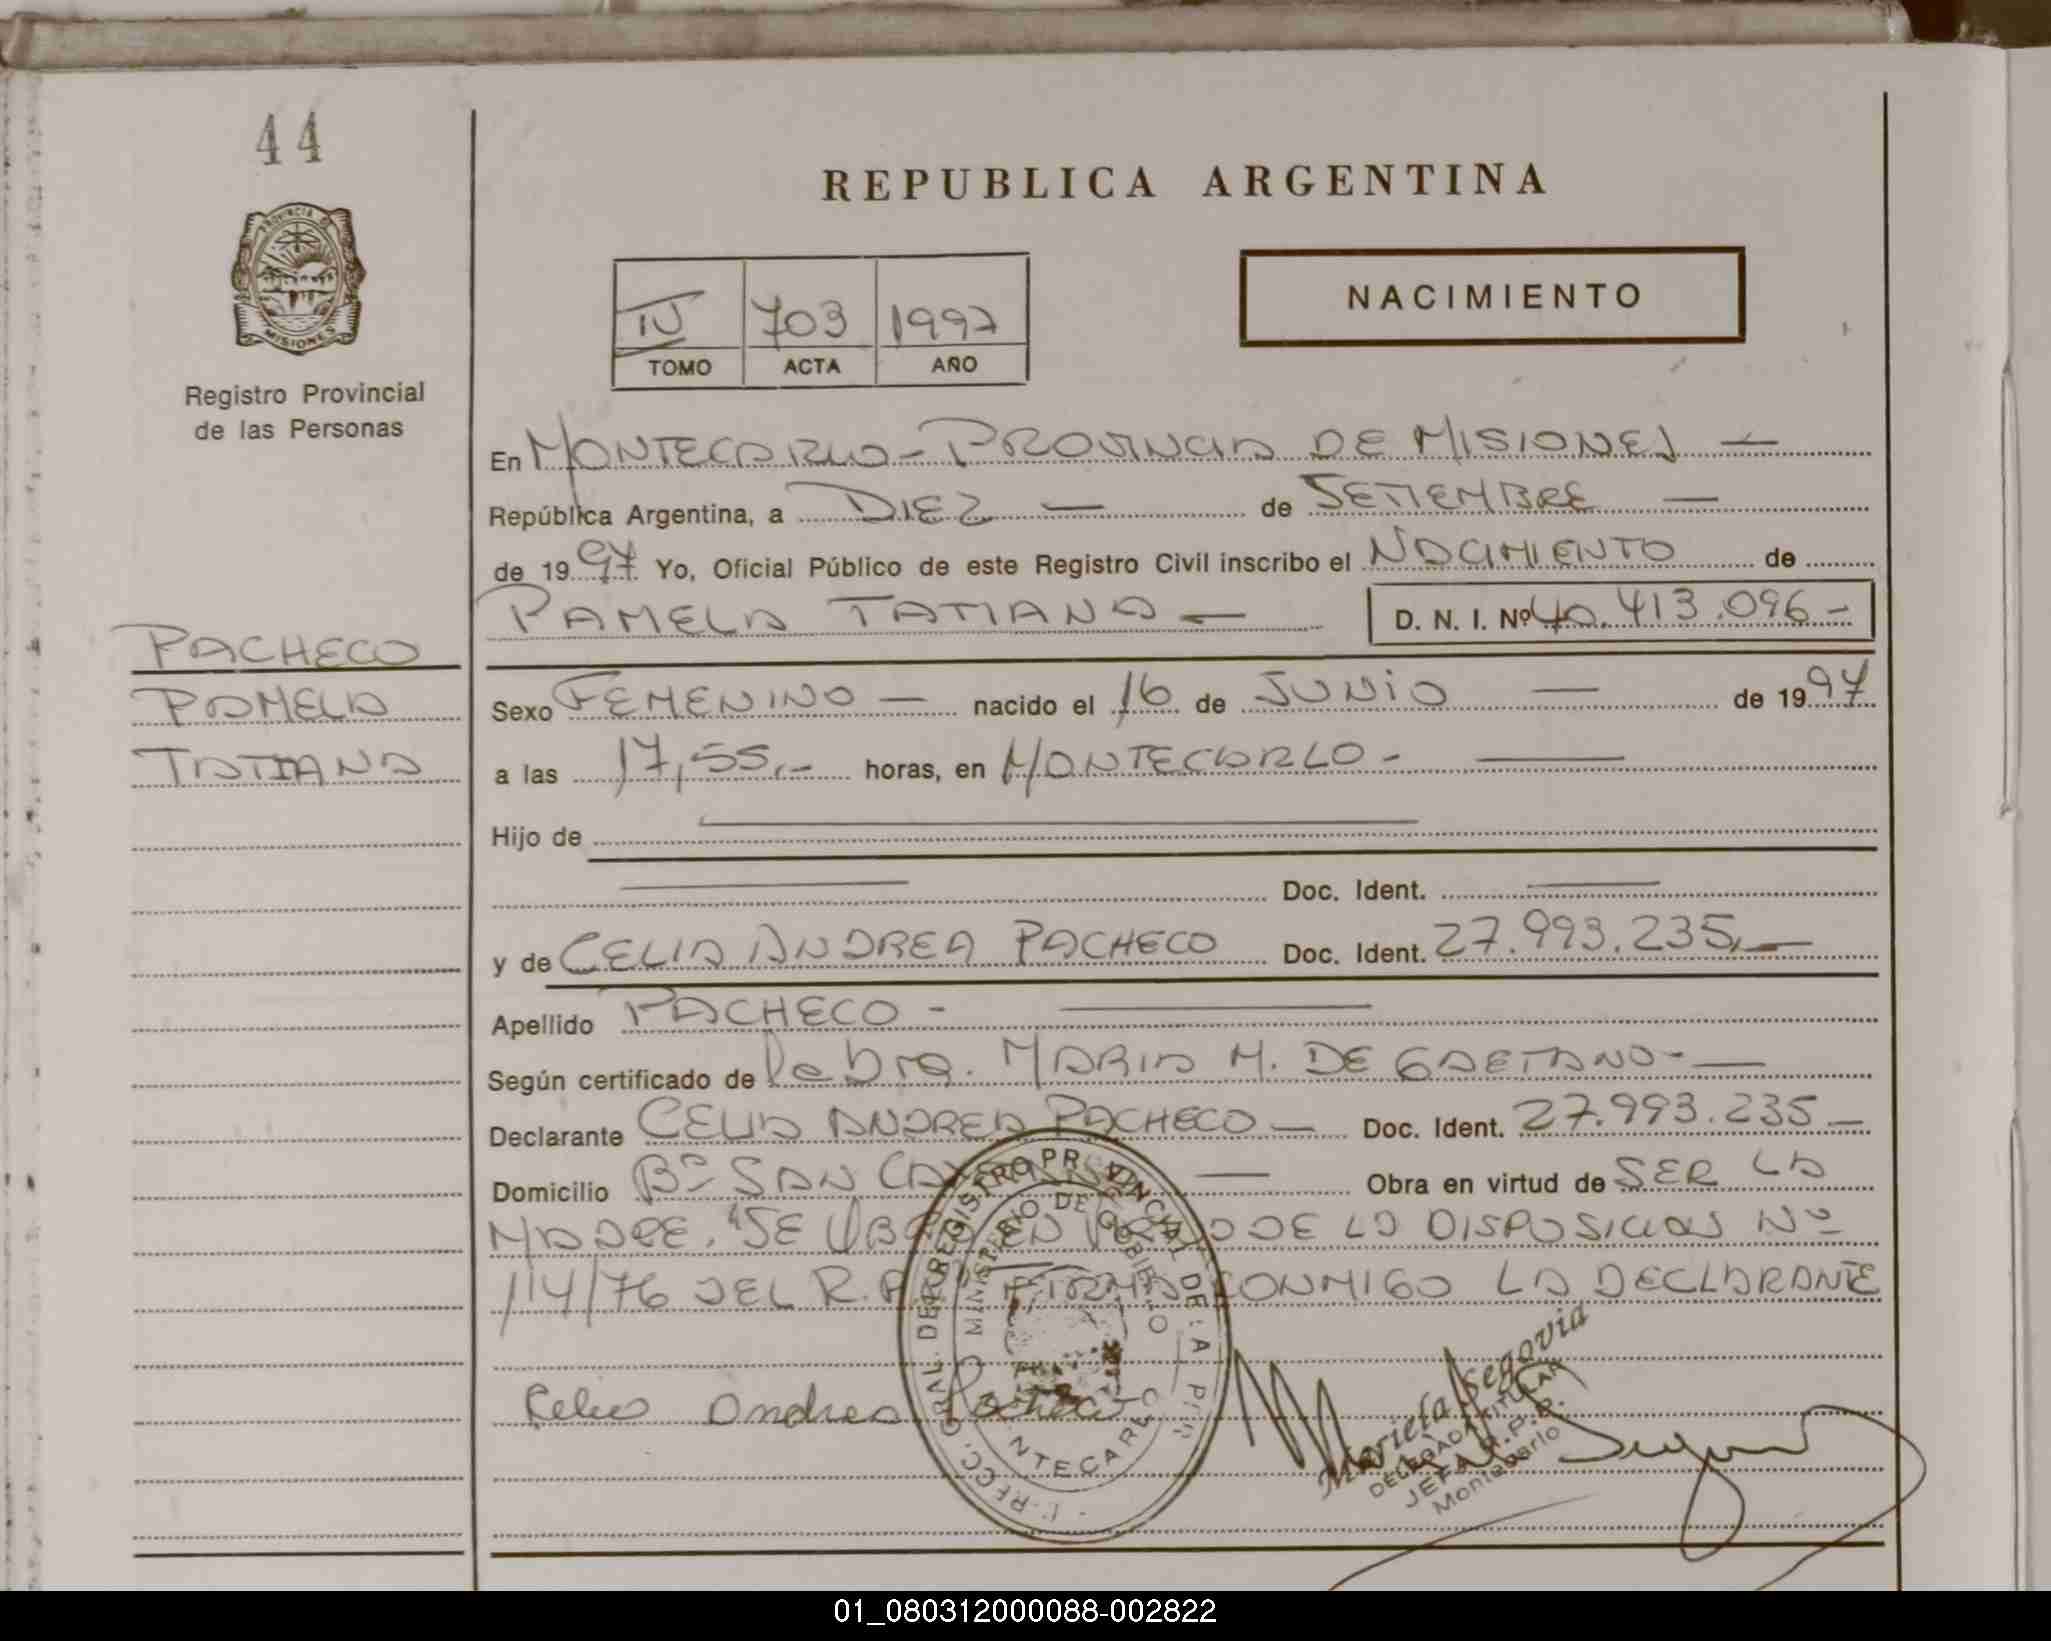 44
REPUBLICA ARGENTINA
PROVINCIA DE
MISIONES
IV 703 1997
TOMO ACTA AÑO
NACIMIENTO
Registro Provincial
de las Personas
En MONTECARLO - PROVINCIA DE MISIONES —
República Argentina, a DIEZ — de SETIEMBRE —
de 1997 Yo, Oficial Público de este Registro Civil inscribo el NACIMIENTO de
PAMELA TATIANA — D. N. I. Nº 40.413.096.-
PACHECO
PAMELA
TATIANA
Sexo FEMENINO — nacido el 16 de JUNIO — de 1997
a las 17,55.- horas, en MONTECARLO - —
Hijo de —
— Doc. Ident. —
y de CELIA ANDREA PACHECO Doc. Ident. 27.993.235,—
Apellido PACHECO - —
Según certificado de la Dra. MARIA M. DE GAETANO - —
Declarante CELIA ANDREA PACHECO — Doc. Ident. 27.993.235 —
Domicilio Bº SAN — Obra en virtud de SER LA
MADRE. SE DE LA DISPOSICION Nº
114/76 DEL R. FIRMA CONMIGO LA DECLARANTE
Celia Andrea Pacheco
MINISTERIO DE GOBIERNO
Mariela Segovia
DELEGADA TITULAR
JEFA R.P.P.
Montecarlo
01_080312000088-002822